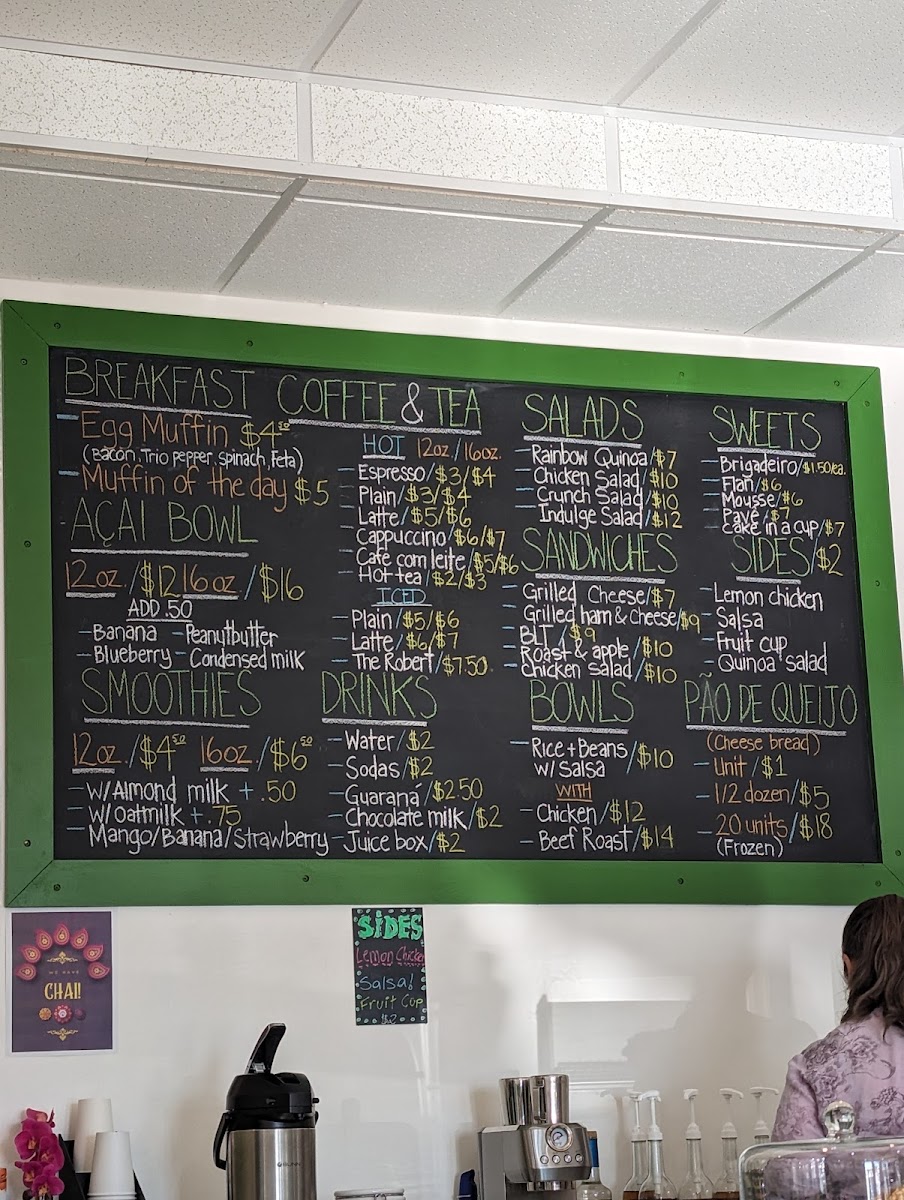 BREAKFAST
Egg Muffin $4.50
(Bacon, Trio pepper, spinach, Feta)
Muffin of the day $5
AÇAI BOWL
12oz./$12 16oz./$16
ADD .50
- Banana - Peanutbutter
- Blueberry - Condensed milk
SMOOTHIES
12oz./$4.50 16oz./$6.50
- W/Almond milk + .50
- W/oatmilk + .75
- Mango/Banana/Strawberry
COFFEE & TEA
HOT 12oz./16oz.
- Espresso/$3/$4
- Plain/$3/$4
- Latte/$5/$6
- Cappuccino/$6/$7
- Cafe com leite/$5/$6
- Hot tea/$2/$3
ICED
- Plain/$5/$6
- Latte/$6/$7
- The Robert/$7.50
DRINKS
- Water/$2
- Sodas/$2
- Guaraná/$2.50
- Chocolate milk/$2
- Juice box/$2
SALADS
- Rainbow Quinoa/$7
- Chicken Salad/$10
- Crunch Salad/$10
- Indulge Salad/$12
SANDWICHES
- Grilled Cheese/$7
- Grilled ham & Cheese/$9
- BLT/$9
- Roast & apple/$10
- Chicken Salad/$10
BOWLS
- Rice + Beans/$10
W/ Salsa
WITH
- Chicken/$12
- Beef Roast/$14
SWEETS
- Brigadeiro/$1.50/ea.
- Flan/$6
- Mousse/$6
- Pavê/$7
- Cake in a cup/$7
SIDES/$2
- Lemon chicken
- Salsa
- Fruit cup
- Quinoa salad
PÃO DE QUEIJO
(Cheese bread)
- Unit/$1
- 1/2 dozen/$5
- 20 units/$18
(Frozen)
WE HAVE
CHAI!
SIDES
Lemon Chicken
Salsa!
Fruit Cup